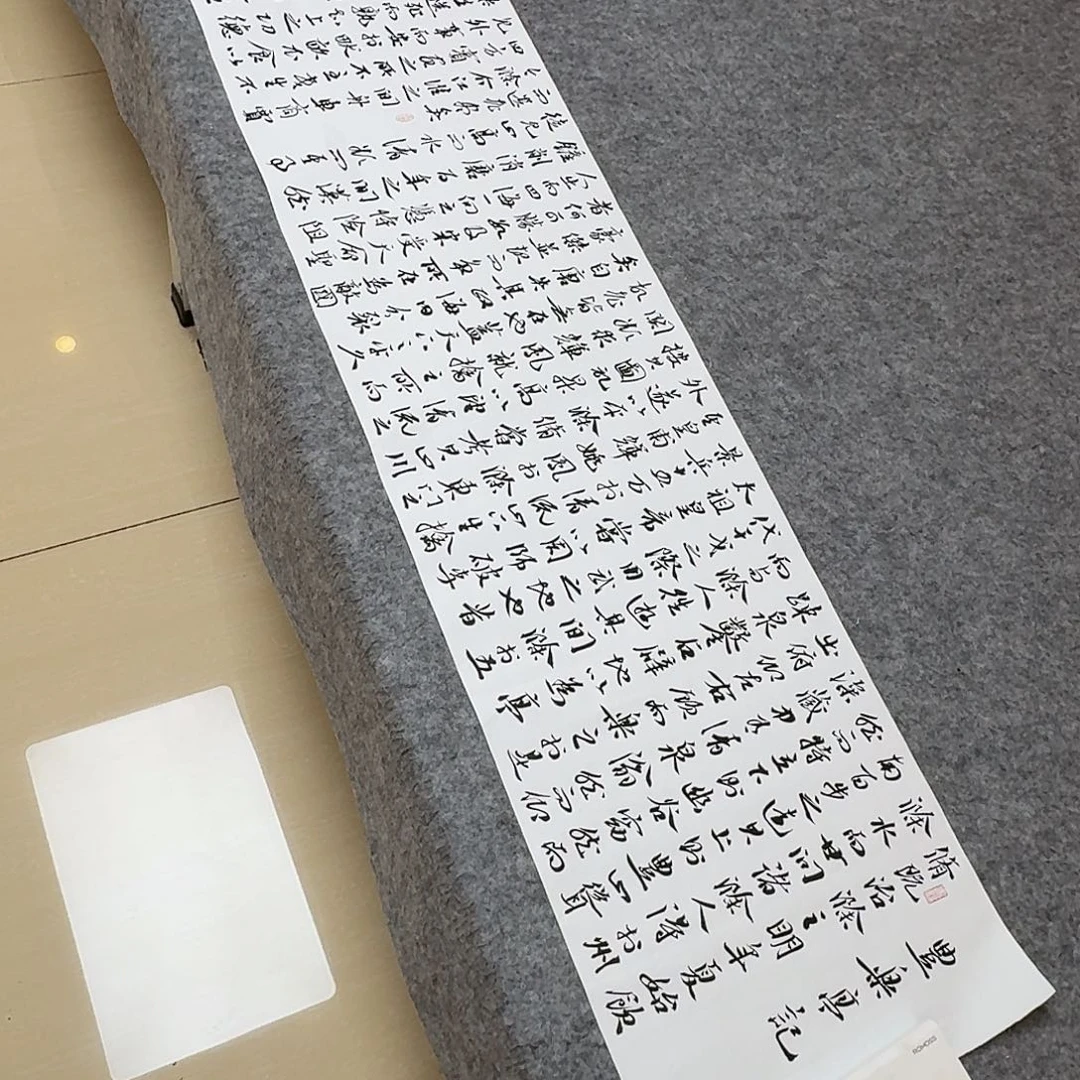 豐樂亭記
脩既治滁之明年夏始飲
滁水而甘問諸滁人得於州
南百步之近其上則豐山聳
然而特立下則幽谷窈然而
深藏中有清泉滃然而仰
出俯仰左右顧而樂之於是
疏泉鑿石闢地以為亭
而與滁人往遊其間滁於五
代干戈之際用武之地也昔
太祖皇帝嘗以周師破李
景兵十五萬於清流山下生擒
皇甫暉姚鳳於滁東門之
外遂以平滁脩嘗考其山川
按其圖記升高以望清流之
關求暉鳳就擒之所而
故老皆無在也蓋天下之平久
矣自唐失其政海內分裂
豪傑並起而爭所在為敵國
者何可勝數及宋受天命聖
人出而四海一嚮之憑恃險阻
剗削消磨百年之間漠然
徒見山高而水清欲問其事
而遺老盡矣
今滁介江淮之間舟車商賈
四方賓客之所不至民生不
見外事而安於畎畝衣食以
孰知上之功德
ROMOSS